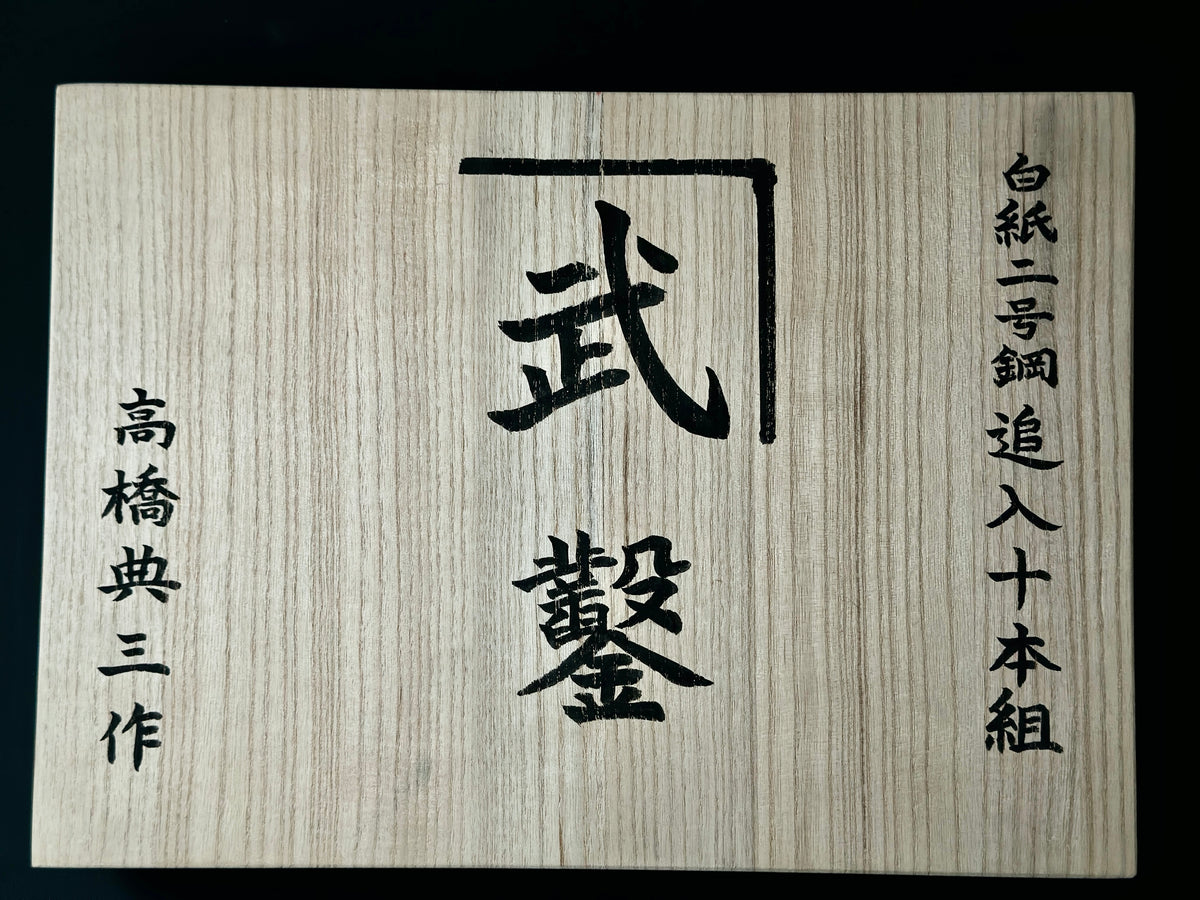 白紙二号鋼 追入十本組
武
鑿
高橋典三作